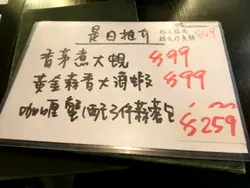 是日推介
香茅煮大蜆 $99
黃金蒜香大滴蝦 $99
咖喱蟹配3仔蒜蓉包
$259